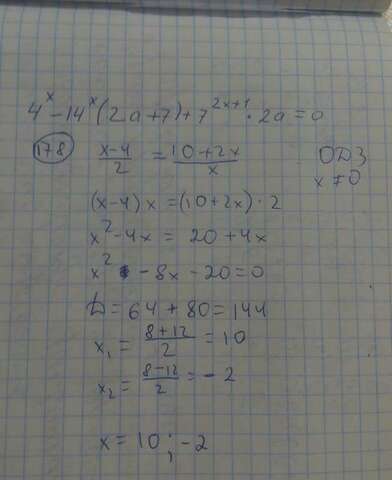 4^x - 14^x (2a + 7) + 7^{2x+1} · 2a = 0
178 (x-4)/2 = (10+2x)/x ОДЗ
x ≠ 0
(x-4)x = (10+2x)·2
x² - 4x = 20 + 4x
x² - 8x - 20 = 0
D = 64 + 80 = 144
x₁ = (8+12)/2 = 10
x₂ = (8-12)/2 = -2
x = 10 ; -2